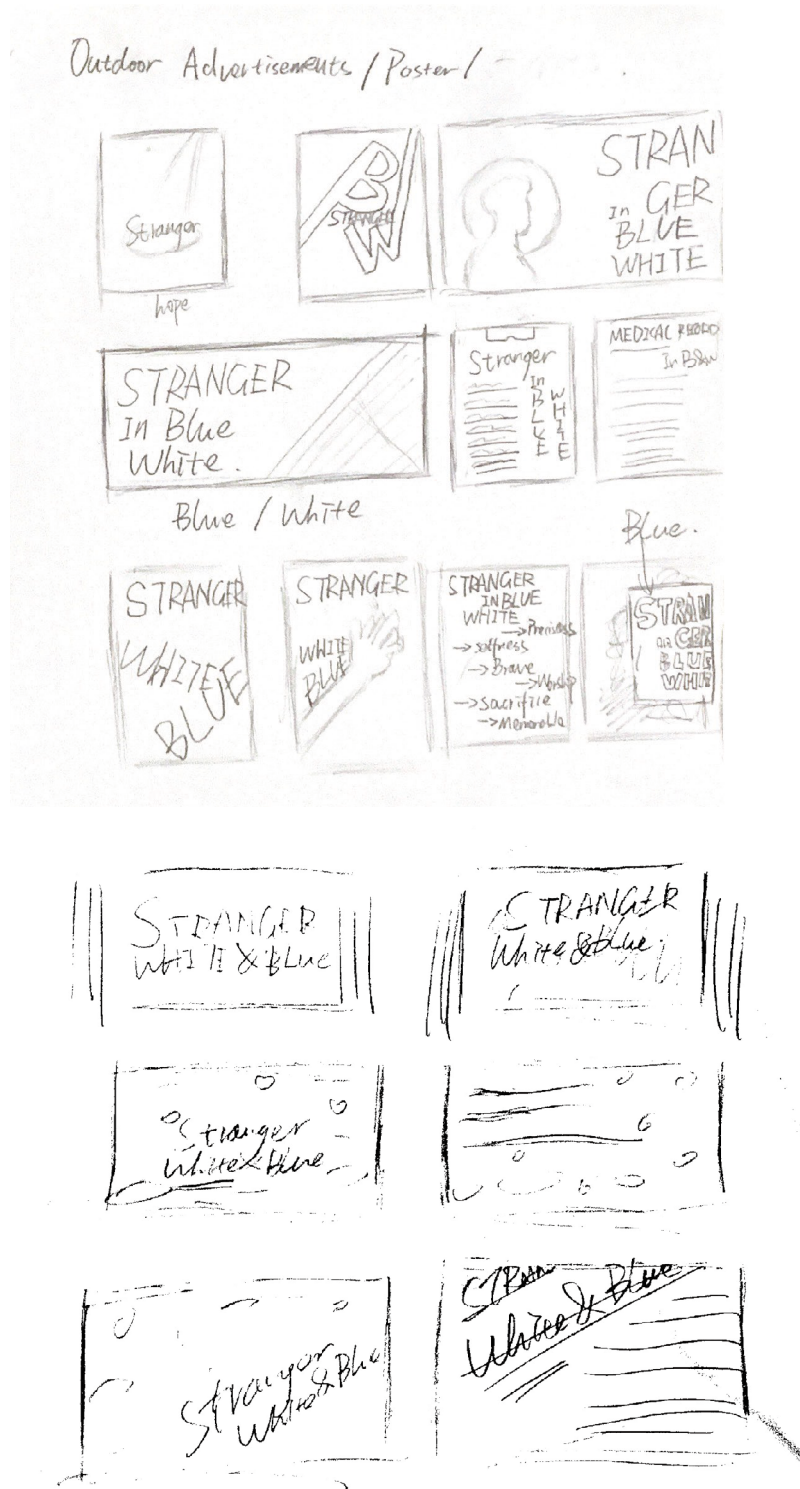 Outdoor Advertisements / Poster /
Stranger
hope
B
STRANGER
W
STRAN
In GER
BLUE
WHITE
STRANGER
In Blue
White.
Blue / White
Stranger
In
BLUE
WHITE
MEDICAL RECORD
In
Blue.
STRANGER
WHITE
BLUE
STRANGER
WHITE
BLUE
STRANGER
IN BLUE
WHITE
→
→ selfness
→ Brave
→ Worship
→ Sacrifice
→
STRAN
GER
BLUE
WHITE
STRANGER
WHITE & BLue
STRANGER
White & Blue
Stranger
White & Blue
Stranger
White & Blue
STRAN
White & Blue